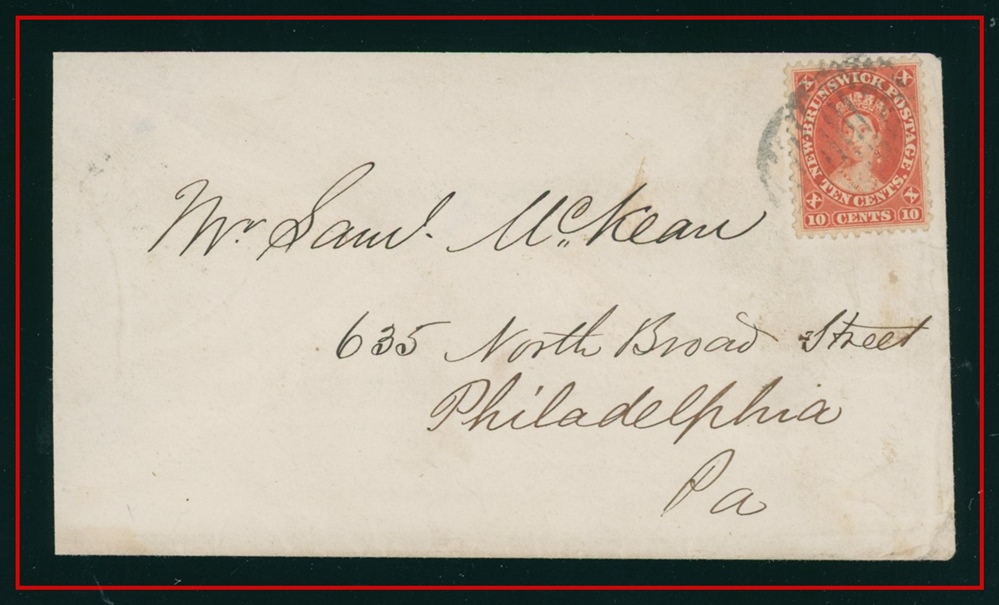 NEW-BRUNSWICK POSTAGE.
X X
TEN CENTS.
X X
10 CENTS 10
Mr Saml. McKean
635 North Broad Street
Philadelphia
Pa